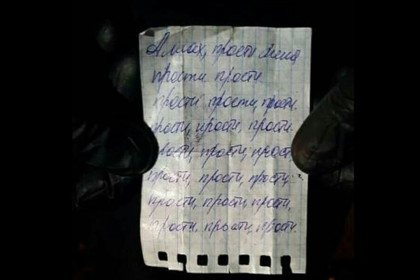 Аллах, прости меня
прости прости.
прости прости, прости.
прости, прости, прости.
прости, прости, прости
прости, прости, прости,
прости, прости, прости,
прости, прости, прости.